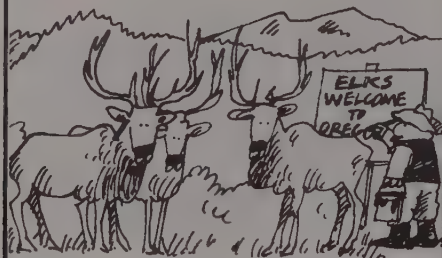 ELKS
WELCOME
TO
OREGO